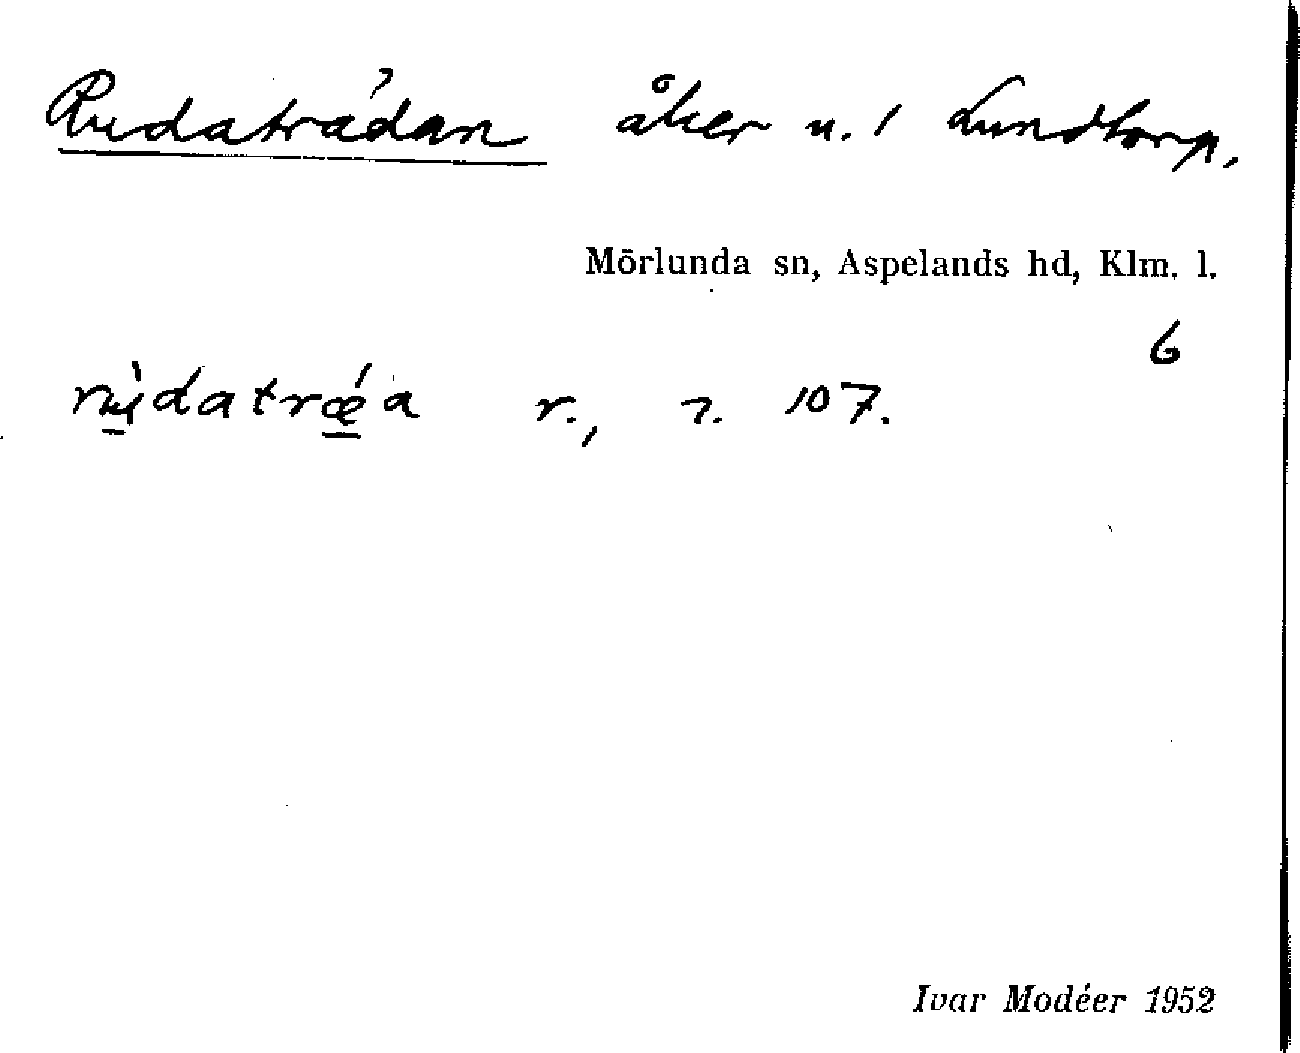 Rudaträdan åker u. 1 Lundtorp.
Mörlunda sn, Aspelands hd, Klm. l.
6
rùdatrǽa r., 7. 107.
Ivar Modéer 1952